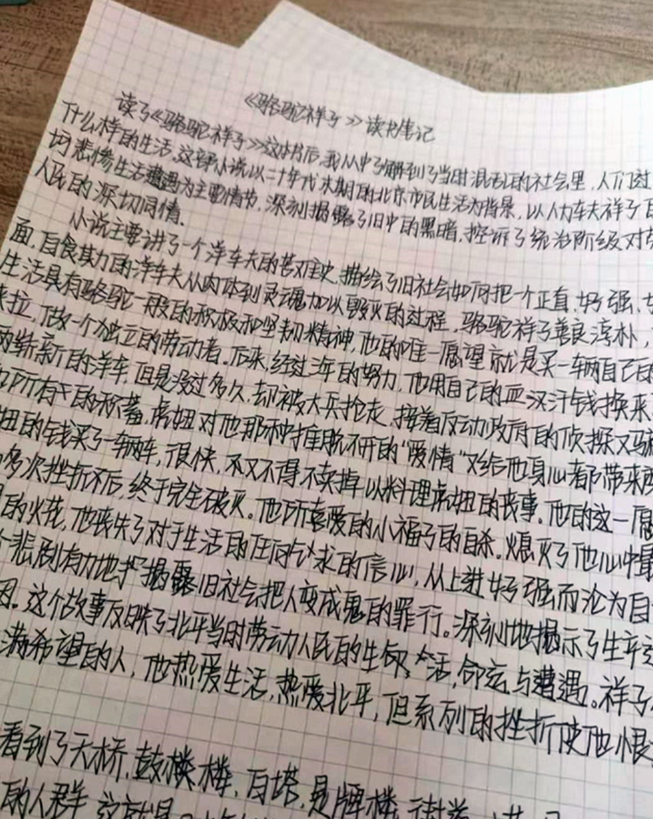 《骆驼祥子》读书笔记
读了《骆驼祥子》这本书后，我从中了解到了当时混乱的社会里，人们过
什么样的生活。这部小说以二十年代末期的北京市民生活为背景，以人力车夫祥子
坷悲惨生活遭遇为主要情节，深刻揭露了旧中国的黑暗，控诉了统治阶级对劳
人民的深切同情。
小说主要讲了一个洋车夫的苦难史。描绘了旧社会如何把一个正直、好强、
面，自食其力的洋车夫从肉体到灵魂加以毁灭的过程，骆驼祥子善良淳朴，
生活具有骆驼一般的积极和坚韧精神。他的唯一愿望就是买一辆自己的
来拉，做一个独立的劳动者。后来，经过三年的努力，他用自己的血汗钱换来
辆崭新的洋车，但是没过多久，却被大兵抢走，接着反动政府的侦探又骗
所有的积蓄，虎妞对他那种推脱不开的“爱情”又给他身心都带来
妞的钱买了一辆车，很快，不又不得不卖掉以料理虎妞的丧事。他的这一愿
多次挫折后，终于完全破灭。他所喜爱的小福子的自杀，熄灭了他心中最
的火花，他丧失了对于生活的任何企求的信心，从上进好强而沦为自
个悲剧有力地揭露旧社会把人变成鬼的罪行。深刻地揭示了
因。这个故事反映了北平当时劳动人民的生活，命运与遭遇。祥子
满希望的人，他热爱生活，热爱北平，但系列的挫折使他恨
看到了天桥，鼓楼，白塔，是牌楼，街
的人群，这就是